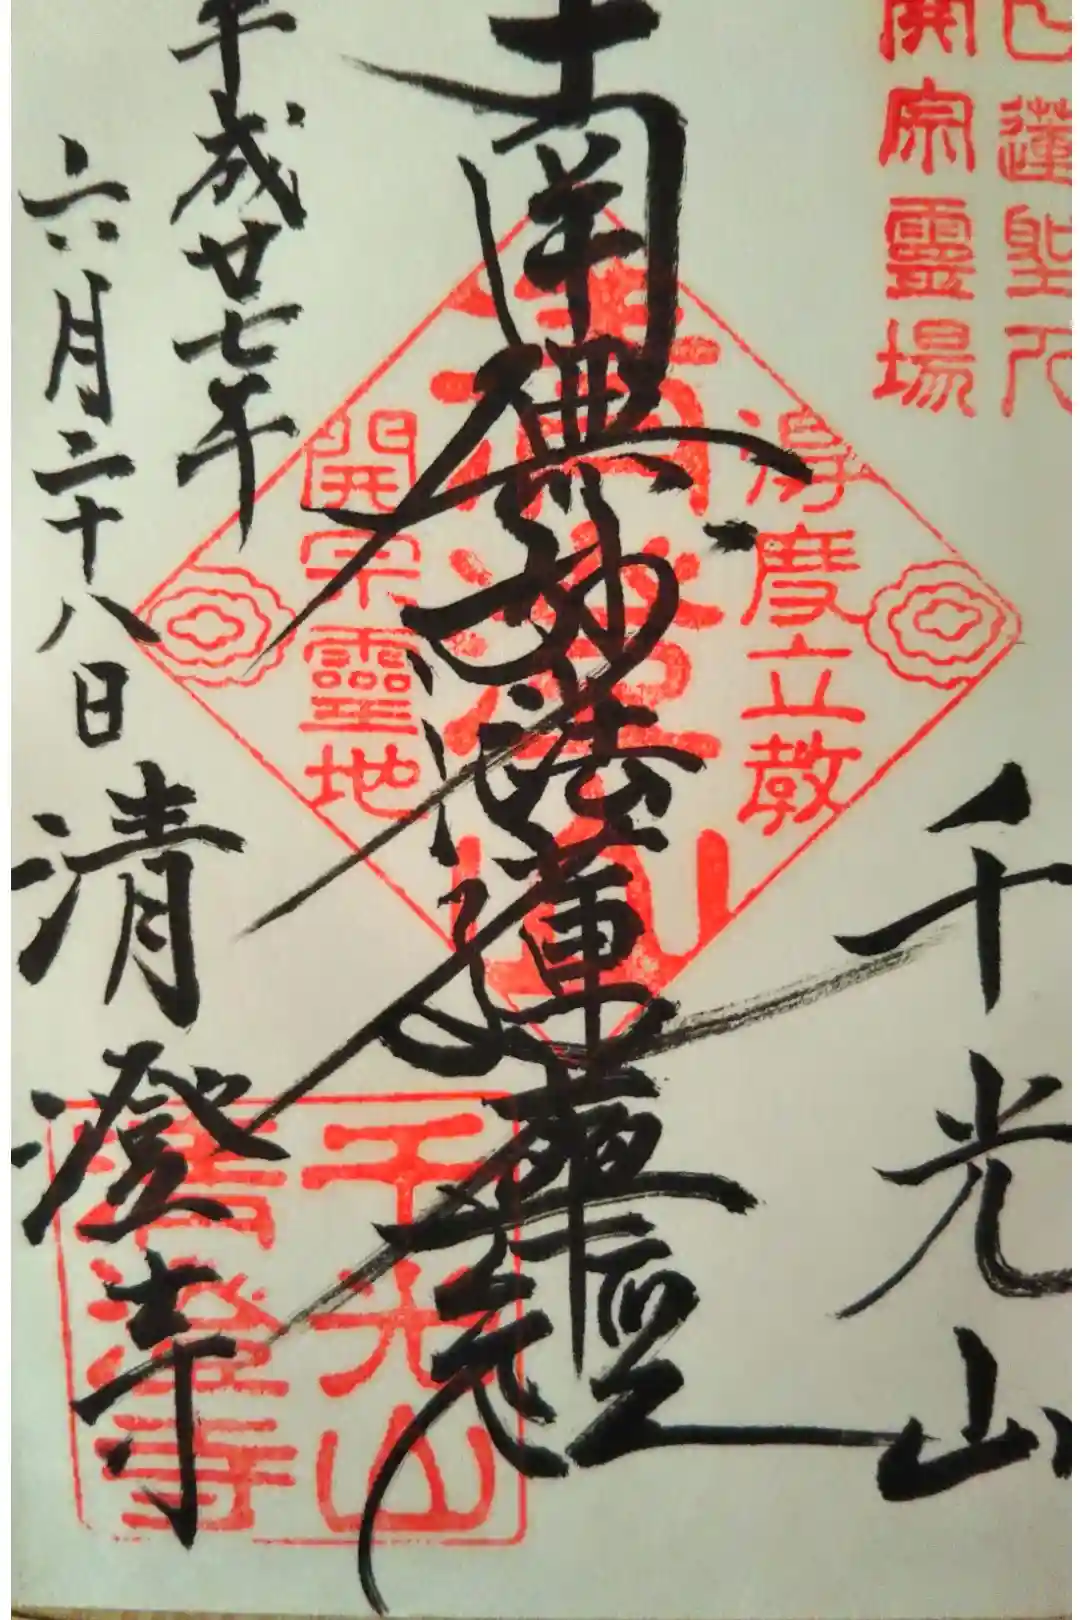 日蓮聖人
開宗靈場
千光山
得度立教
南無妙法蓮華經
開宗靈地
平成廿七年
六月二十八日
清澄寺
千光山
清澄寺